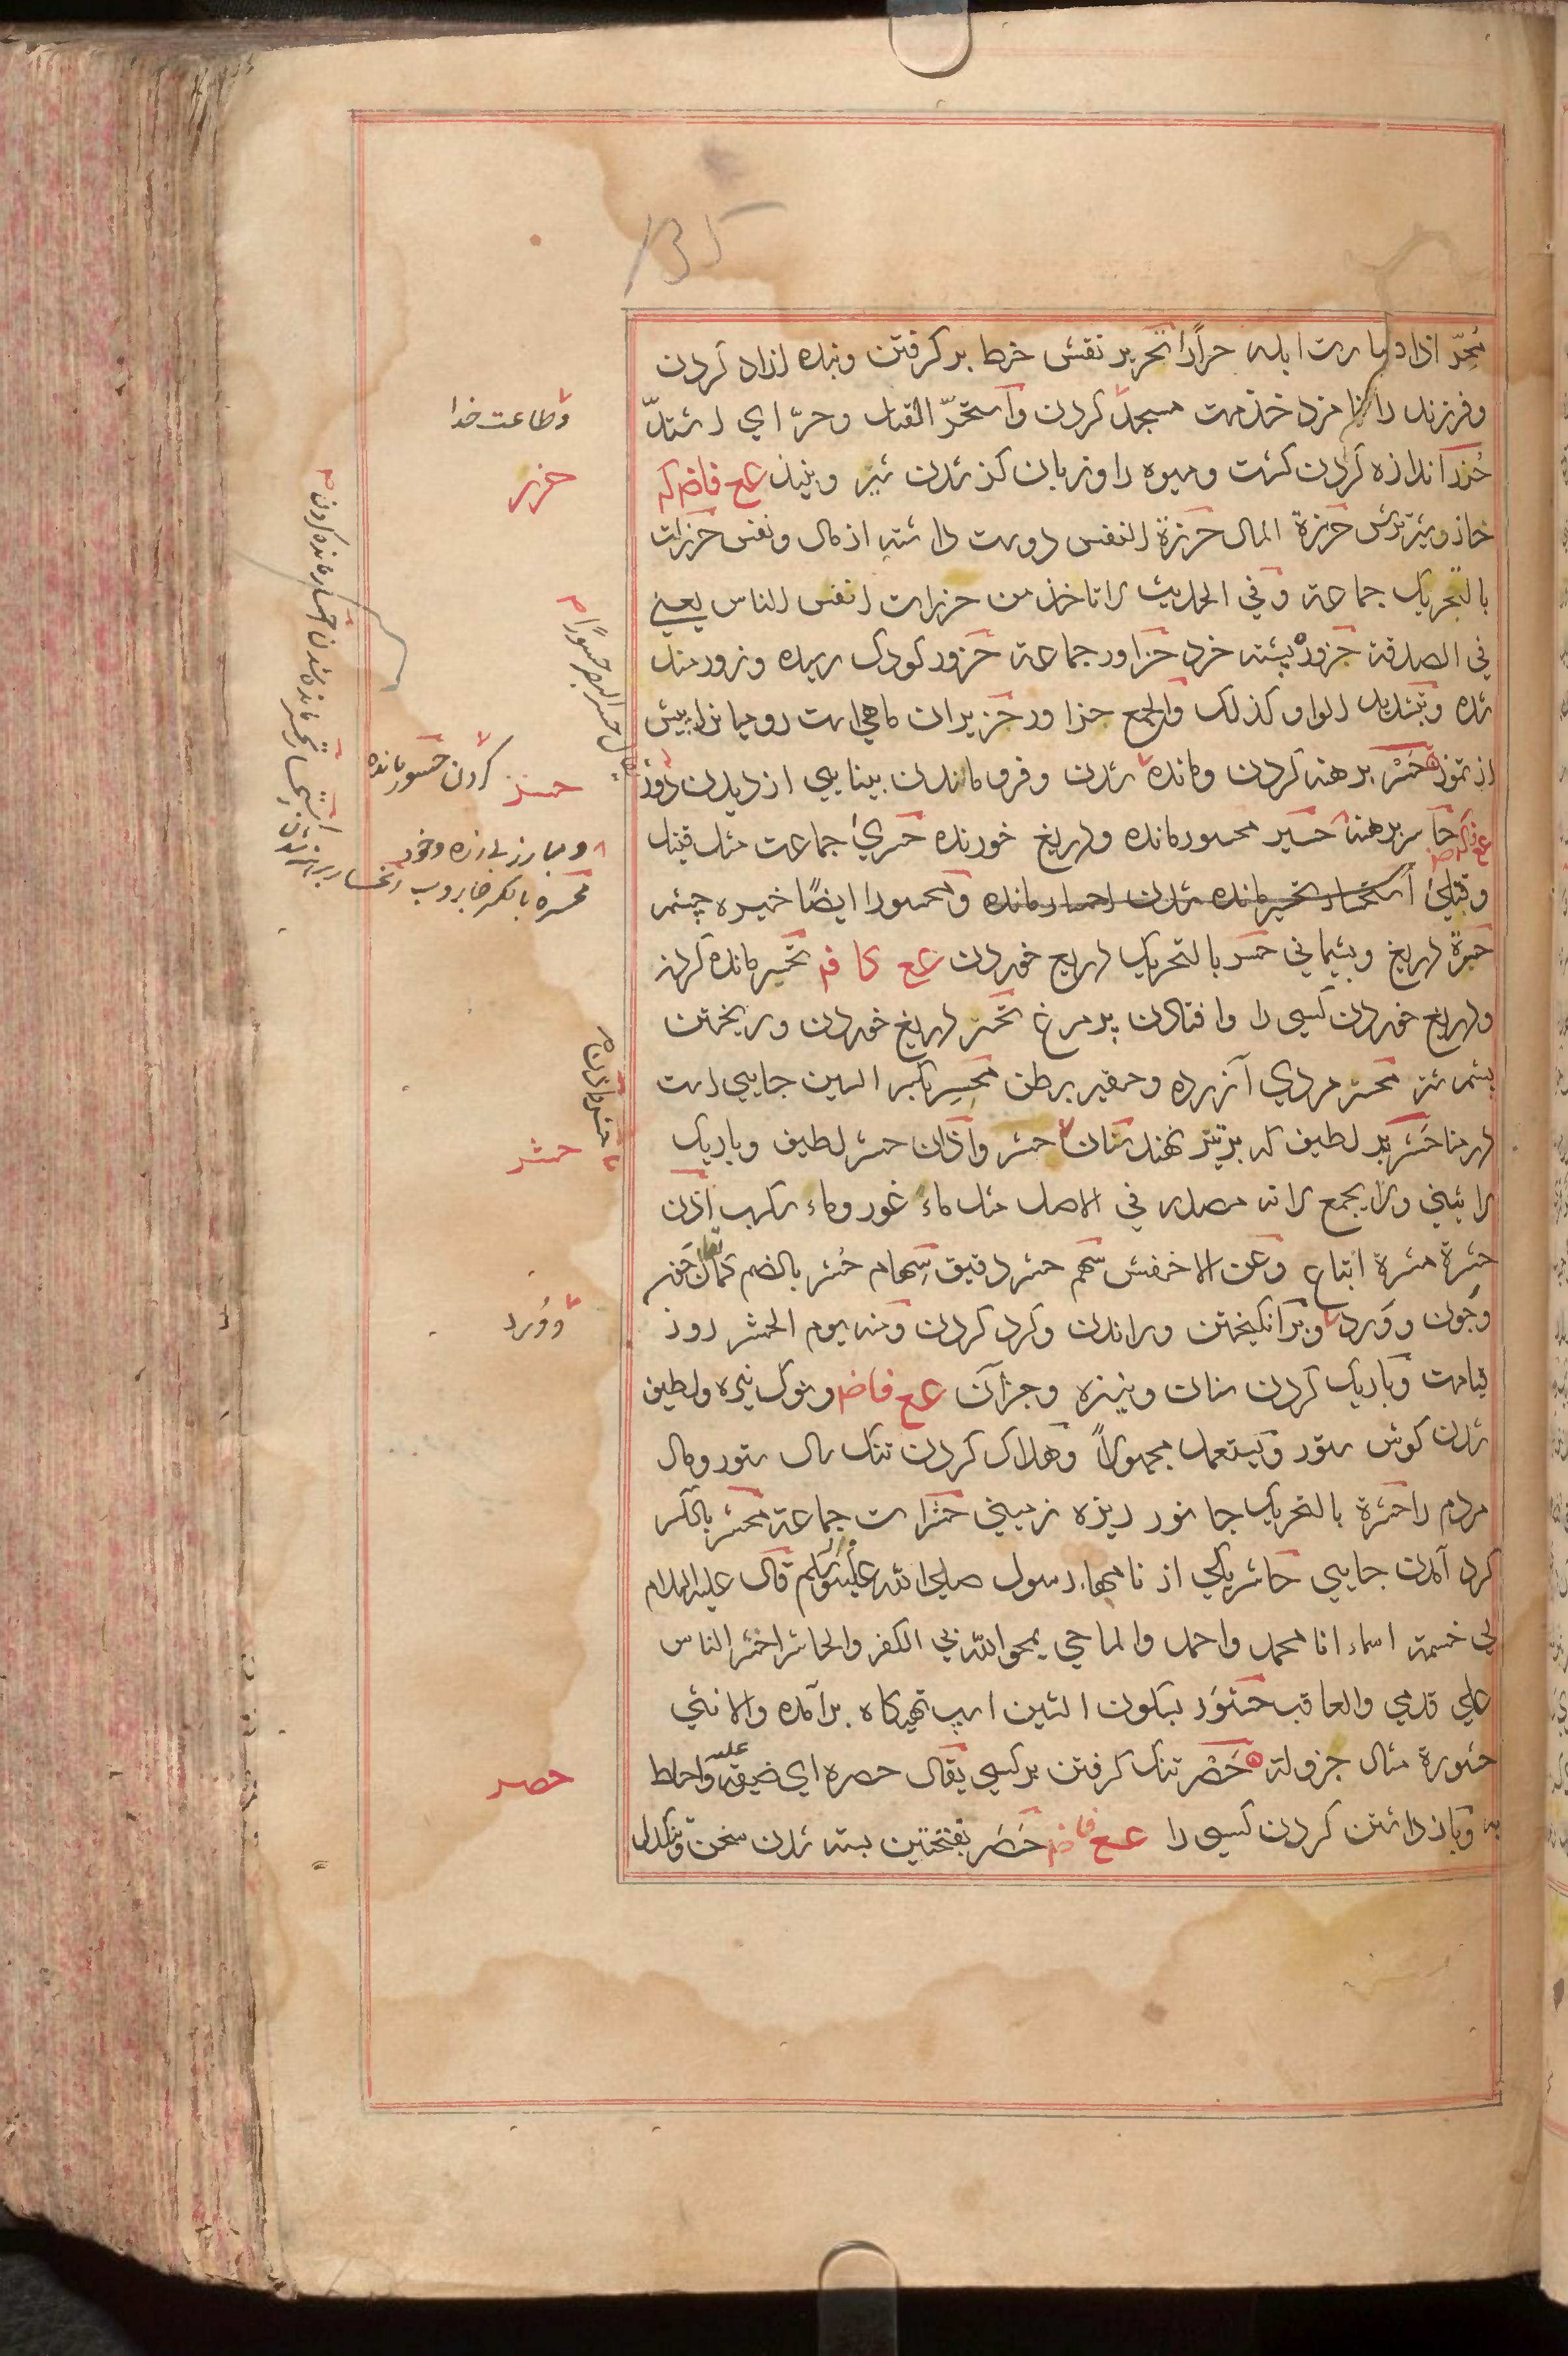 135
مُحِرّ اذا صارت ابله حرارا تحریر نقش خط بر کرفتن و بنده ازاد کردن
و فرزند را نامزد خدمت مسجد کردن و استحرّ القتل و حرّ ای اشتدّ
حَزر اندازه کردن کشت و میوه را و زبان کز شدن شیر و نبیذ عع فاضم کم
حاز و شیر ترش حزرة المال حزرة النفس دوست داشته از مال و نفس حزرات
بالتحریک جماعة و فی الحدیث لا تاخذ من حزرات انفس الناس یعنی
فی الصدقة حزورة پشته خرد حزاور جماعة حزور کودک رسیده و زورمند
شده و بتشدید الواو کذلک و الجمع حزاور حزیران ماهی است رومیانرا پیش
از تموز حَسْر برهنه کردن و مانده شدن و فرو ماندن بینایی از دیدن دور
حاسر برهنه حسیر محسور مانده و دریغ خورنده حسری جماعت مثل قتیل
و قتلی استحسار تحسر مانده شدن احسار مانده و محسورا ایضًا خیره چشم
حسرة دریغ و پشیمانی حسر بالتحریک دریغ خوردن عع کا فم تحسیر مانده کردن
و دریغ خوردن کسی را و افتادن پر مرغ تحسّر دریغ خوردن و ریختن
پشم شتر محسّر مردی آزرده و حقیر برطن محسِر بکسر السین جایی است
در منا حَشْر پر لطیف که بر تیر نهند سنان حشر و آذان حشر لطیف و باریک
لا یثنی و لا یجمع لانه مصدر فی الاصل مثل ماء غور و ماء سکب اذن
حشرة مشرة اتباع و عن الاخفش سهم حشر دقیق سِهام حُشر بالضم کمال
وجون و وَرد و برانکیختن و راندن و کرد کردن و منه یوم الحشر روز
قیامت و باریک کردن سنان و نیزه و جز آن عع فاضم و نوک نیزه و لطیف
شدن کوش ستور و یستعمل مجهولاً و هلاک کردن تنک سال ستور و مال
مردم را حشرة بالتحریک جانور ریزه زمینی حشرات جماعة محشر بالکسر
کرد آمدن جایی حاشر یکی از نامهاء رسول صلی الله علیه و سلم قال علیه السلام
لی خمسة اسماء انا محمد و احمد و الماحی یمحو الله بی الکفر و الحاشر احشر الناس
علی قدمی و العاقب حَشْوَر بسکون الشین اسپ تهیکاه برآمده و الانثی
حشورة مثال جرولة حَصْر تنک کرفتن بر کسی یقال حصره ای ضیق علیه و احاط
به و باز داشتن کردن کسی را عع فاضم حَصَر بفتحتین بسته شدن سخن و تنکدل
و طاعت خدا
حزر
حسر
کردن حسور مانده
و مبارز بی زره و خود
محسره بالکسر جاروب انحسار برهنه شدن
یقال حسر البصر حسورًا
حشر
و وُرد
حصر